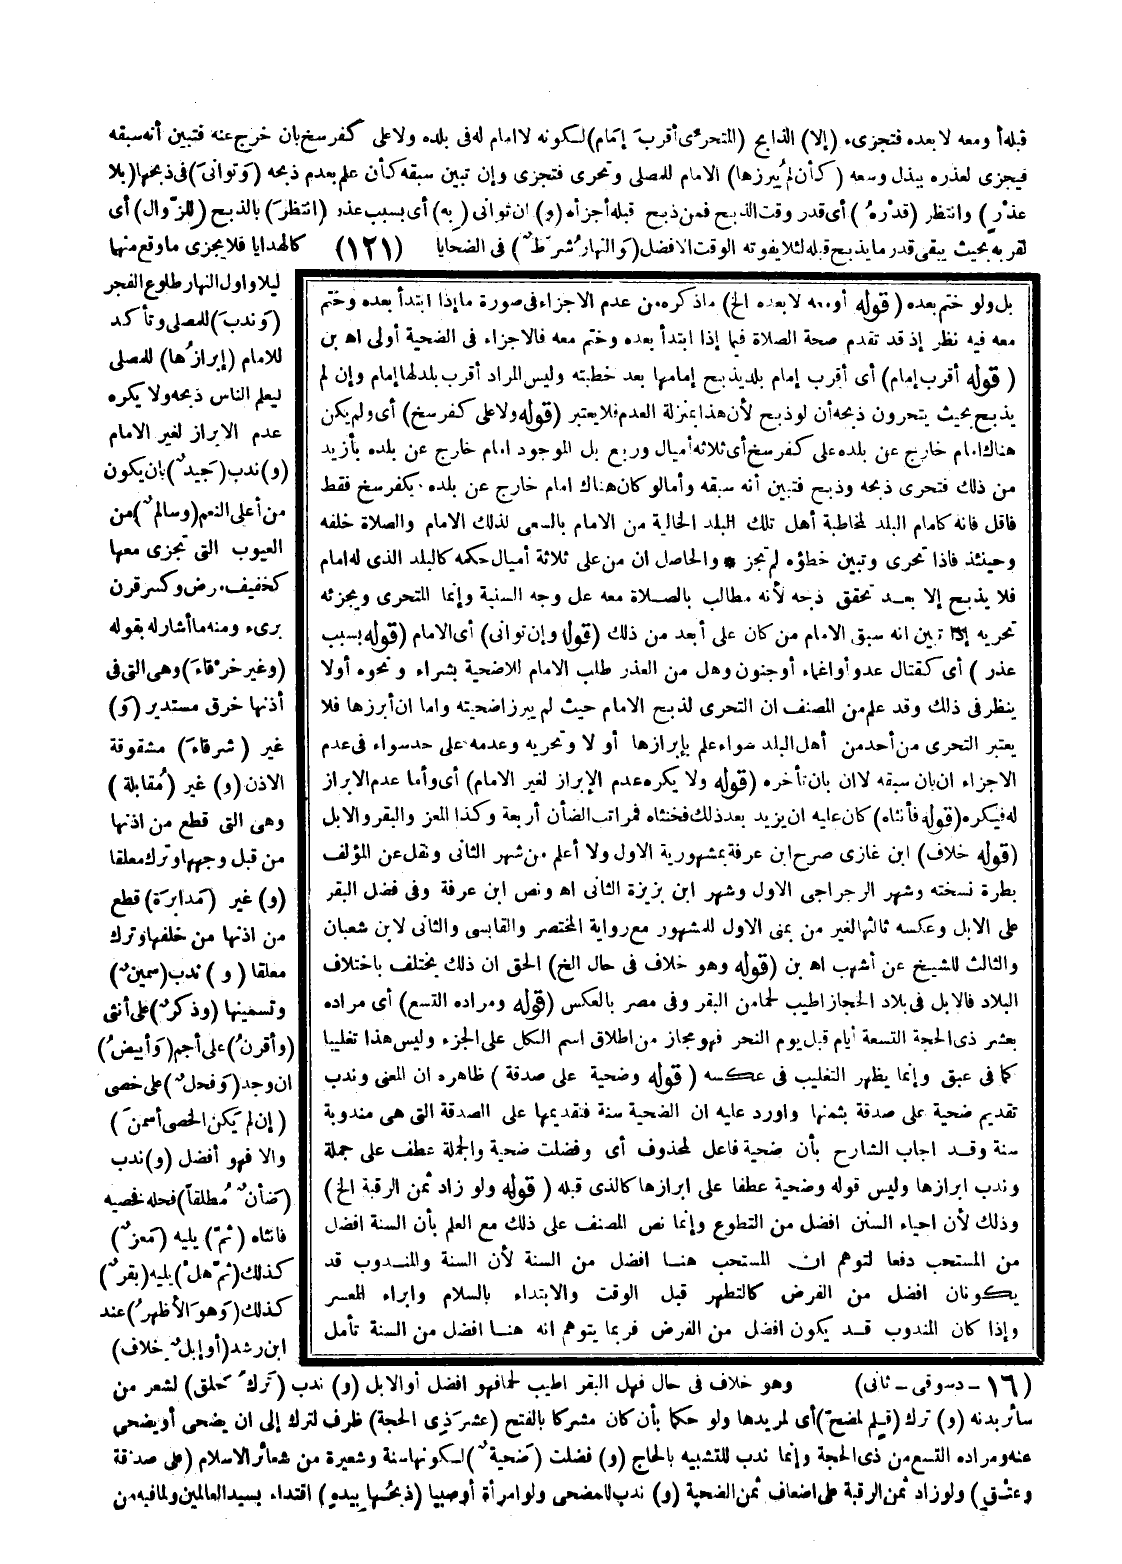 قبله أو معه لا بعده فتجزىء (إلا) الذابح (المتحرّى أقربَ إمَام) لكونه لا امام له فى بلده ولا على كفرسخ بان خرج عنه فتبين أنه سبقه
فيجزى لعذره ببذل وسعه (كأن لم يُبرزها) الامام للمصلى وتحرى فتجزى وإن تبين سبقه كأن علم بعدم ذبحه (وَتوانىَ) فى ذبحها (بلا
عذرٍ) وانتظر (قدْرهُ) أى قدر وقت الذبح فمن ذبح قبله أجزأه (و) ان توانى (به) أى بسبب عذر (انتظرَ) بالذبح (للزّوال) أى
لقربه بحيث يبقى قدر ما يذبح قبله لئلا يفوته الوقت الافضل (وَالنهار شرطٌ) فى الضحايا (١٢١) كالهدايا فلا يجزى ما وقع منها
ليلا واول النهار طلوع الفجر
(وَندبَ) للمصلى وتأكد
للامام (إبرازُها) للمصلى
ليعلم الناس ذبحه ولا يكره
عدم الابراز لغير الامام
(و) ندب (جيدٌ) بان يكون
من أعلى النعم (وسالمٌ) من
العيوب التى تجزى معها
كخفيف مرض وكسر قرن
برىء ومنه ما أشار له بقوله
(وغير خرْقاءَ) وهى التى فى
أذنها خرق مستدير (وَ)
غير (شرقاءَ) مشقوقة
الاذن (و) غير (مُقابلة)
وهى التى قطع من اذنها
من قبل وجهها وترك معلقا
(و) غير (مَدابرَة) قطع
من اذنها من خلفها وترك
معلقا (و) ندب (سمينٌ)
وتسمينها (وذكرٌ) على أنثى
(وأقرنُ) على أجم (وَأبيضُ)
ان وجد (وَفحلٌ) على خصى
(إن لم يَكن الخصى أسمنَ)
والا فهو أفضل (و) ندب
(ضَأنٌ مُطلقاً) فحله فخصيه
فانثاه (ثمّ) يليه (مَعزٌ)
كذلك (ثمّ هلْ) يليه (بقرٌ)
كذلك (وَهوَ الأظهرُ) عند
ابن رشد (أو إبلٌ خلاف)
بل ولو ختم بعده (قوله أو معه لا بعده الخ) ما ذكره من عدم الاجزاء فى صورة ما إذا ابتدأ بعده وختم
معه فيه نظر إذ قد تقدم صحة الصلاة فيما إذا ابتدأ بعده وختم معه فالاجزاء فى الضحية أولى اه بن
(قوله أقرب إمام) أى أقرب إمام بلد يذبح إمامها بعد خطبته وليس المراد أقرب بلد لها إمام وإن لم
يذبح بحيث يتحرون ذبحه أن لو ذبح لأن هذا بمنزلة العدم فلا يعتبر (قوله ولا على كفرسخ) أى ولم يكن
هناك امام خارج عن بلده على كفرسخ أى ثلاثة أميال وربع بل الموجود امام خارج عن بلده بأزيد
من ذلك فتحرى ذبحه وذبح فتبين أنه سبقه وأما لو كان هناك امام خارج عن بلده بكفرسخ فقط
فاقل فانه كامام البلد لمخاطبة أهل تلك البلد الخالية من الامام بالسعى لذلك الامام والصلاة خلفه
وحينئذ فاذا تحرى وتبين خطؤه لم تجز * والحاصل ان من على ثلاثة أميال حكمه كالبلد الذى له امام
فلا يذبح إلا بعد تحقق ذبحه لأنه مطالب بالصلاة معه على وجه السنية وإنما المتحرى ويجزئه
تحريه إذا تبين انه سبق الامام من كان على أبعد من ذلك (قوله وإن توانى) أى الامام (قوله بسبب
عذر) أى كقتال عدو أو اغماء أو جنون وهل من العذر طلب الامام للاضحية بشراء ونحوه أولا
ينظر فى ذلك وقد علم من المصنف ان التحرى لذبح الامام حيث لم يبرز اضحيته واما ان أبرزها فلا
يعتبر التحرى من أحد من أهل البلد سواء علم بإبرازها أو لا وتحريه وعدمه على حد سواء فى عدم
الاجزاء ان بان سبقه لا ان بان تأخره (قوله ولا يكره عدم الإبراز لغير الامام) أى وأما عدم الابراز
له فيكره (قوله فأنثاه) كان عليه ان يزيد بعد ذلك فخنثاه فمراتب الضأن أربعة وكذا المعز والبقر والابل
(قوله خلاف) ابن غازى صرح ابن عرفة بمشهورية الاول ولا أعلم من شهر الثانى ونقل عن المؤلف
بطرة نسخته وشهر الرجراجى الاول وشهر ابن بزيزة الثانى اه ونص ابن عرفة وفى فضل البقر
على الابل وعكسه ثالثها لغير من بمنى الاول للمشهور مع رواية المختصر والقابسى والثانى لابن شعبان
والثالث للشيخ عن أشهب اه بن (قوله وهو خلاف فى حال الخ) الحق ان ذلك يختلف باختلاف
البلاد فالابل فى بلاد الحجاز اطيب لحما من البقر وفى مصر بالعكس (قوله ومراده التسع) أى مراده
بعشر ذى الحجة التسعة أيام قبل يوم النحر فهو مجاز من اطلاق اسم الكل على الجزء وليس هذا تغليبا
كما فى عبق وإنما يظهر التغليب فى عكسه (قوله وضحية على صدقة) ظاهره ان المعنى وندب
تقديم ضحية على صدقة بثمنها واورد عليه ان الضحية سنة فتقديمها على الصدقة التى هى مندوبة
سنة وقد اجاب الشارح بأن ضحية فاعل لمحذوف أى وفضلت ضحية والجملة عطف على جملة
وندب ابرازها وليس قوله وضحية عطفا على ابرازها كالذى قبله (قوله ولو زاد ثمن الرقبة الخ)
وذلك لأن احياء السنن افضل من التطوع وإنما نص المصنف على ذلك مع العلم بأن السنة افضل
من المستحب دفعا لتوهم ان المستحب هنا افضل من السنة لأن السنة والمندوب قد
يكونان افضل من الفرض كالتطهر قبل الوقت والابتداء بالسلام وابراء المعسر
وإذا كان المندوب قد يكون افضل من الفرض فربما يتوهم انه هنا افضل من السنة تأمل
(١٦ - دسوقى - ثانى) وهو خلاف فى حال فهل البقر اطيب لحما فهو افضل أو الابل (و) ندب (تَركُ حَلق) لشعر من
سائر بدنه (و) ترك (قلم لمضحّ) أى لمريدها ولو حكما بأن كان مشركا بالفتح (عشرَ ذِى الحجة) ظرف لترك إلى ان يضحى أو يضحى
عنه ومراده التسع من ذى الحجة وإنما ندب للتشبيه بالحاج (و) فضلت (ضَحيةٌ) لكونها سنة وشعيرة من شعائر الاسلام (على صدَقة
وعتقٍ) ولو زاد ثمن الرقبة على اضعاف ثمن الضحية (و) ندب للمضحى ولو امرأة أو صبيا (ذبحُها بيده) اقتداء بسيد العالمين ولما فيه من